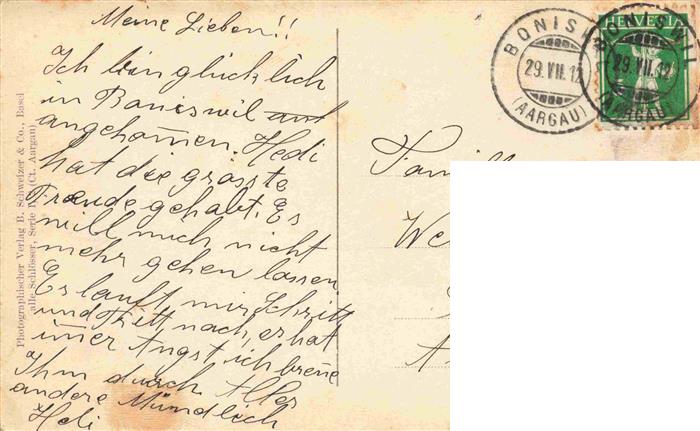 Meine Lieben!!
Ich bin glücklich
in Boniswil
angekommen. Hedi
hat die grösste
Freude gehabt. Es
will mich nicht
mehr gehen lassen
Es lauft mir Schritt
und Tritt nach, er hat
imer Angst ich
Ihm durch. Alles
andere Mündlich
Hedi
Photographischer Verlag B. Schweizer & Co., Basel
alle Schlösser, Serie (Ct. Aargau)
BONISWIL
29.VII.12
(AARGAU)
HELVETIA
BONISWIL
29.VII.12
(AARGAU)